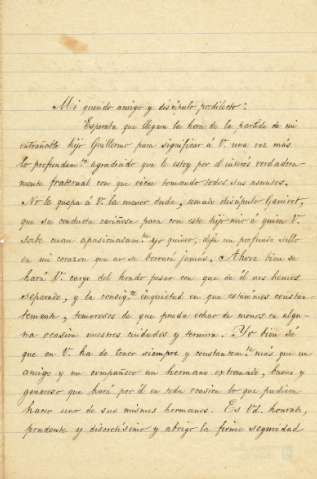 Mi querido amigo y discípulo predilecto:
Esperaba que llegara la hora de la partida de mi
entrañable hijo Guillermo para significar á V. una vez más
lo profundam.te agradecido que le estoy por el interés verdadera-
mente fraternal con que viene tomando todos sus asuntos.
No le quepa á V. la menor duda, amado discípulo Ganivet,
que su conducta cariñosa para con este hijo mío á quien V.
sabe cuan apasionadam.te yo quiero, deja un profundo sello
en mi corazon que no se borrará jamás. Ahora bien se
hará V. cargo del hondo pesar con que de él nos hemos
separado, y la consig.te inquietud en que estamos constan-
temente, temerosos de que pueda echar de menos en algu-
na ocasion nuestros cuidados y ternura. Yo bien sé
que en V. ha de tener siempre y constantem.te más que un
amigo y un compañero un hermano extremado, bueno y
generoso que hará por él en toda ocasion lo que pudiera
hacer uno de sus mismos hermanos. Es Vd. honrado,
prudente y discretísimo y abrigo la firme seguridad